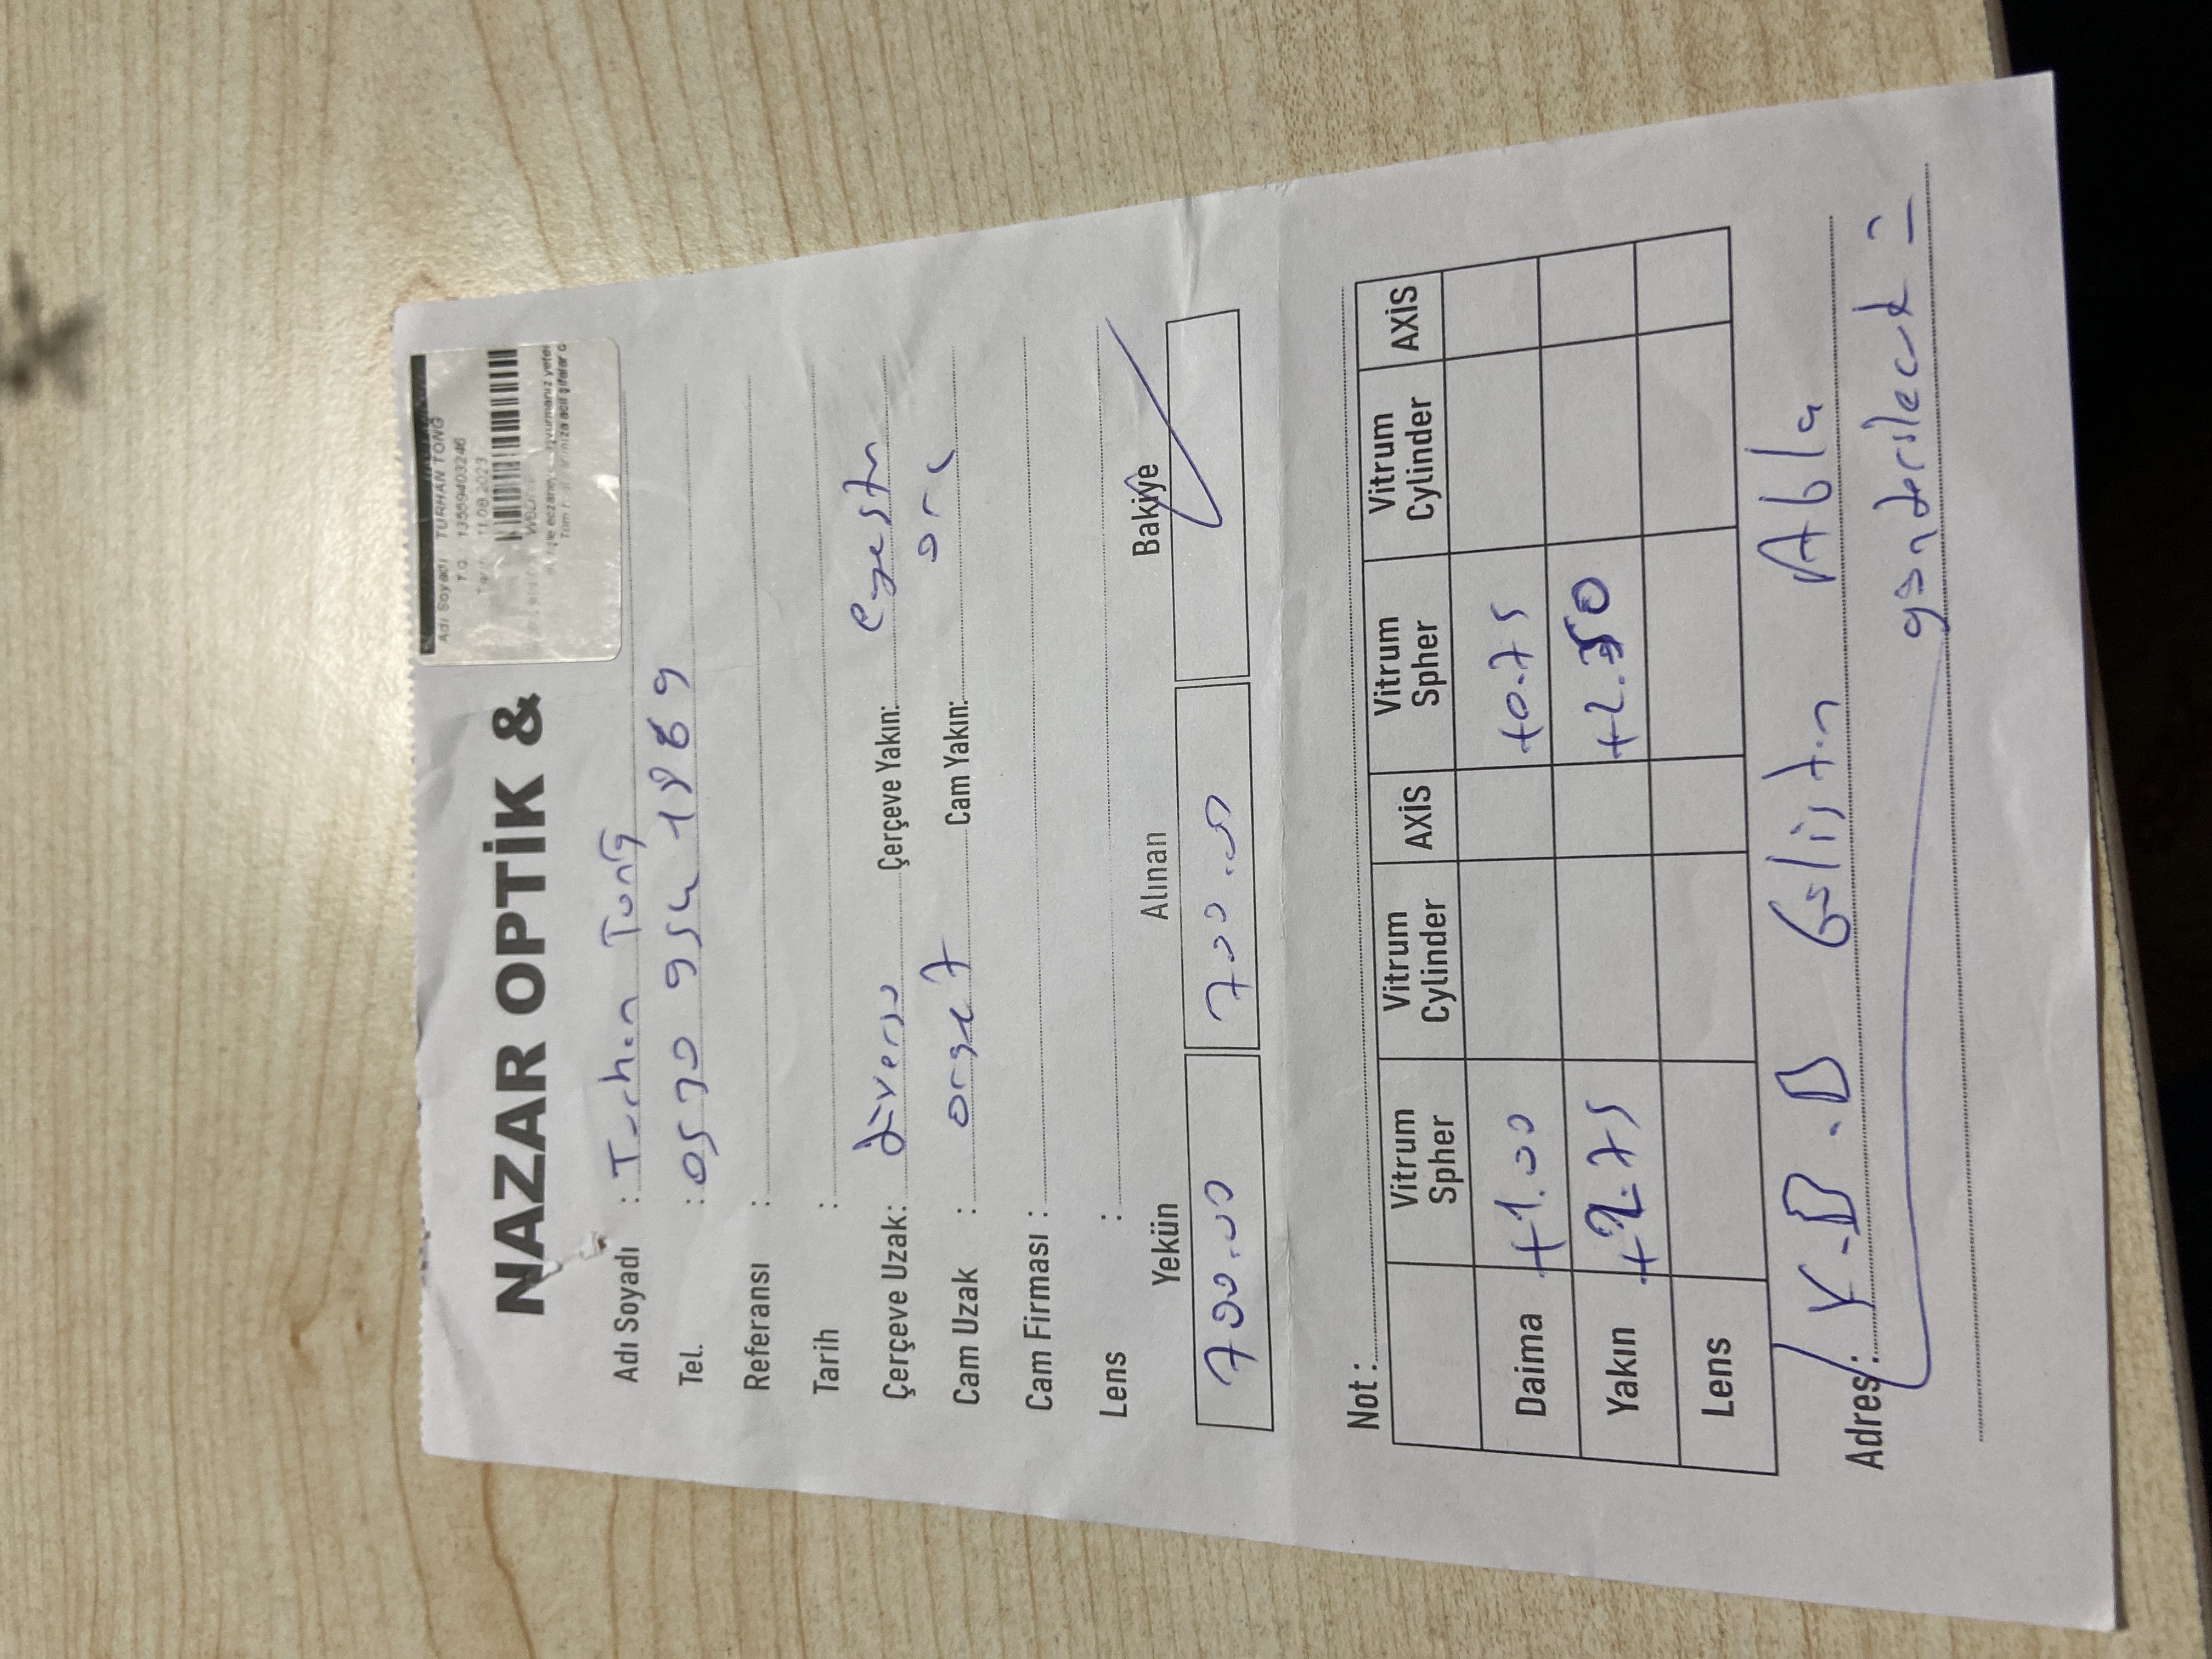 Adı Soyadı TURHAN TONĞ
T.C. 13559403246
Tarih 11.08.2023
NAZAR OPTİK &
eczaneye başvurmanız yeter
Tüm hastalarımıza acil şifalar
Adı Soyadı : Turhan Tonğ
Tel. : 0570 954 1869
Referansı :
Tarih :
Çerçeve Uzak: diverso Çerçeve Yakın:
Cam Uzak : Cam Yakın: org
Cam Firması :
Lens :
Yekün Alınan Bakiye
700.00 700.00
Not :
Vitrum Spher Vitrum Cylinder AXİS Vitrum Spher Vitrum Cylinder AXİS
Daima +1.00 +0.75
Yakın +2.75 +2.50
Lens
Adres : K.B.B Gülistan Abla
gönderilecek =